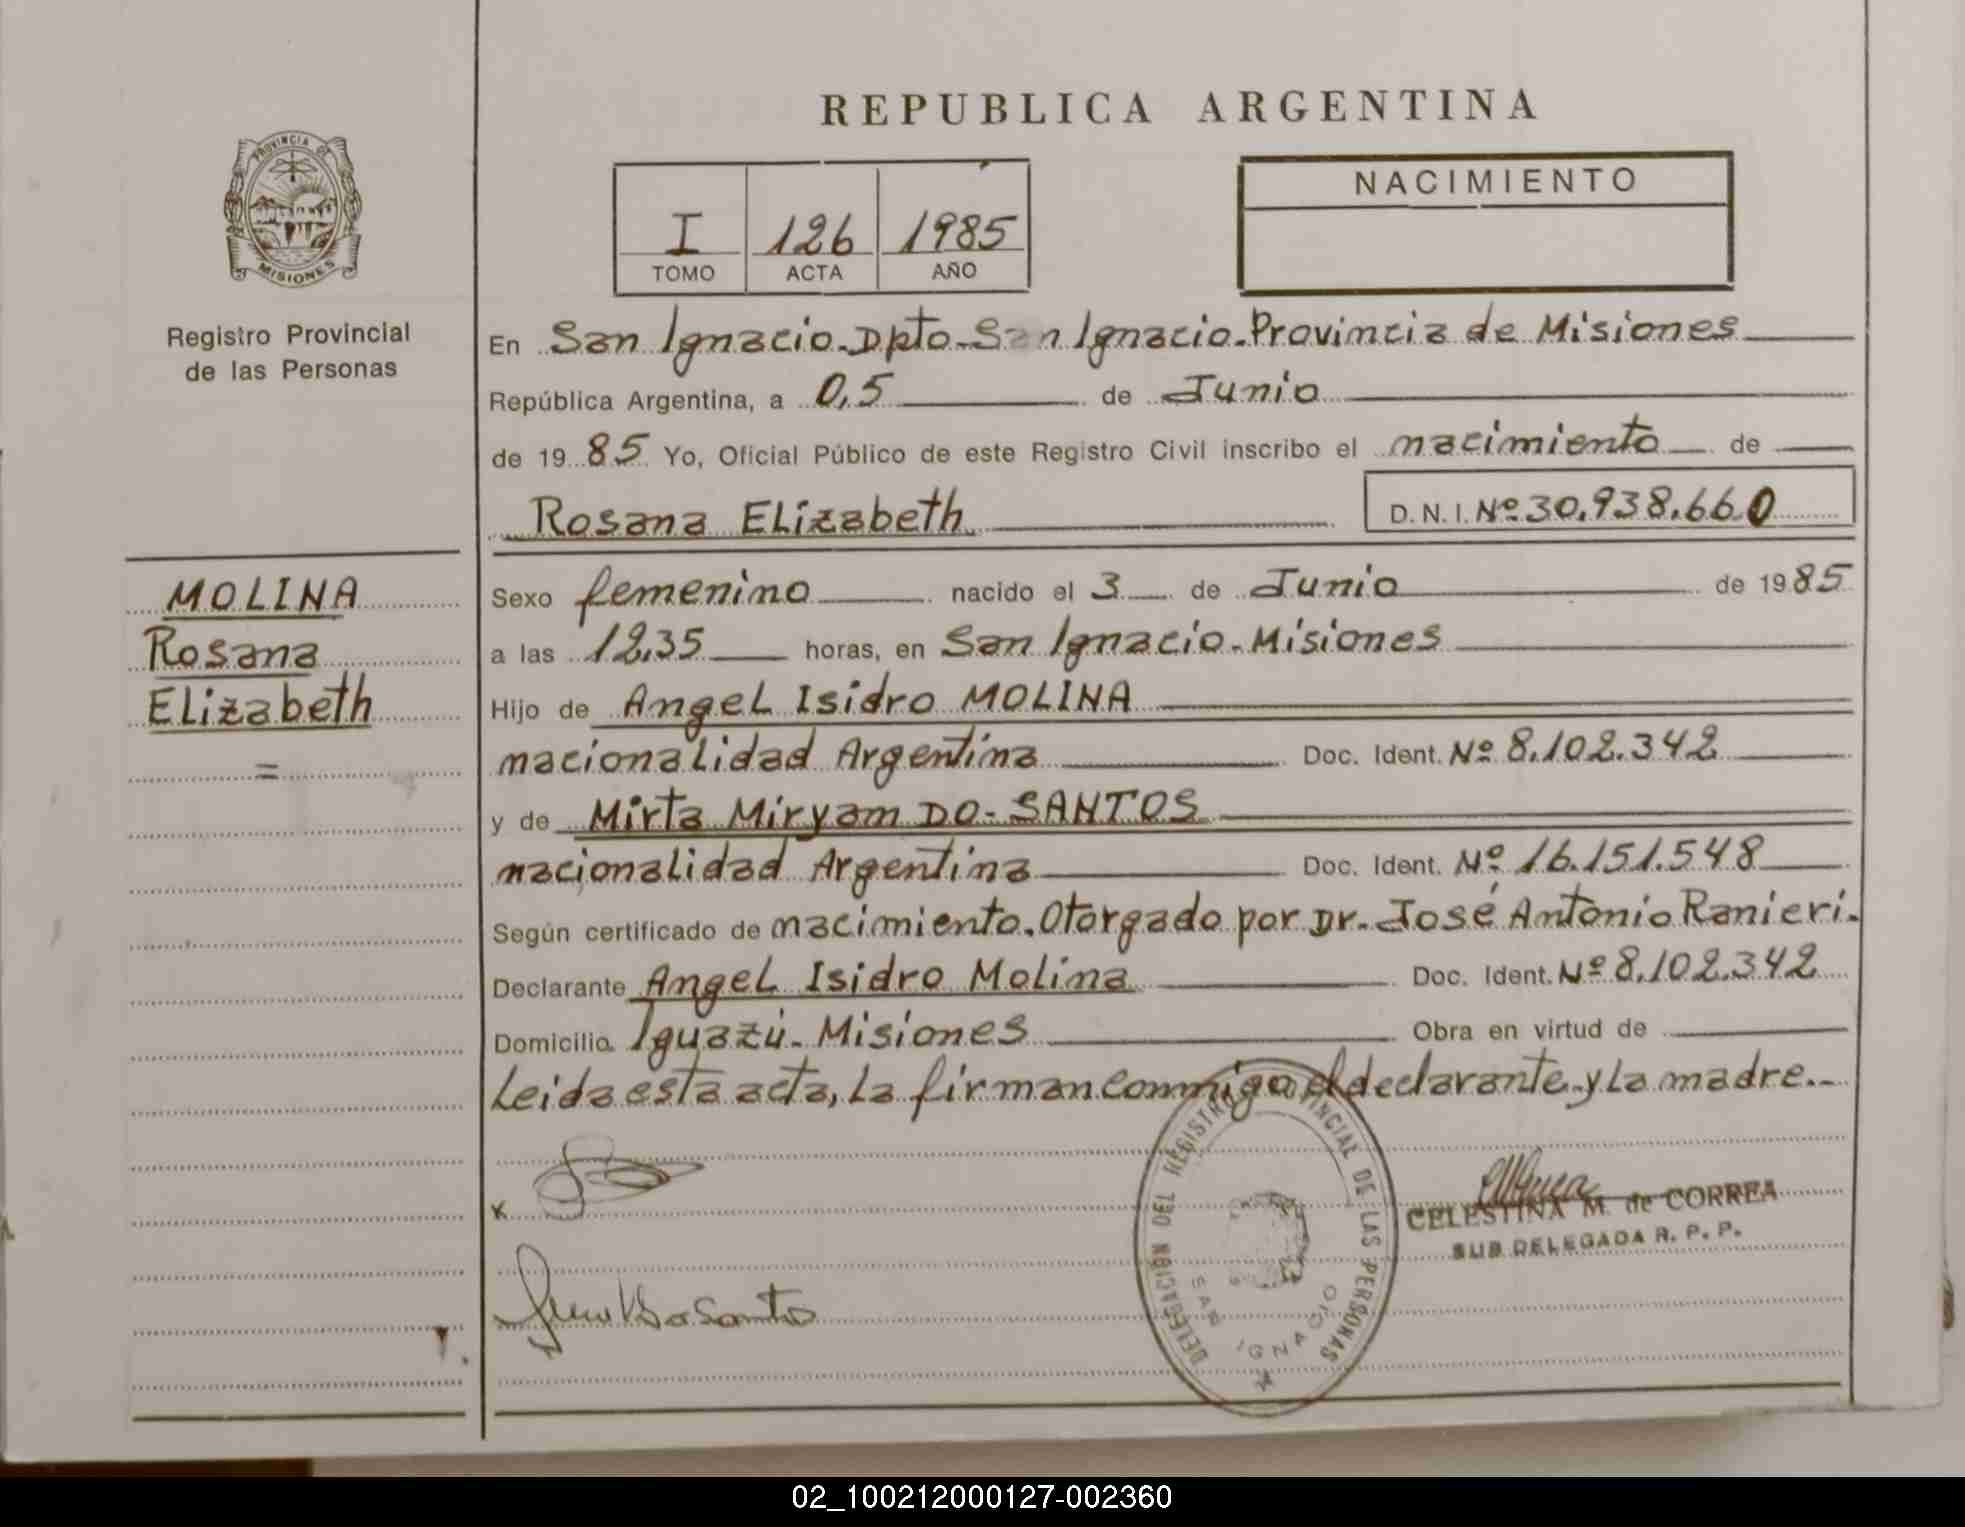 REPUBLICA ARGENTINA
PROVINCIA DE
MISIONES
Registro Provincial
de las Personas
I 126 1985
TOMO ACTA AÑO
NACIMIENTO
En San Ignacio. Dpto. San Ignacio. Provincia de Misiones
República Argentina, a 0,5 de Junio
de 1985 Yo, Oficial Público de este Registro Civil inscribo el nacimiento de
Rosana Elizabeth D.N.I. Nº 30.938.660
MOLINA
Rosana
Elizabeth
=
Sexo femenino nacido el 3 de Junio de 1985
a las 12,35 horas, en San Ignacio. Misiones
Hijo de Angel Isidro MOLINA
nacionalidad Argentina Doc. Ident. Nº 8.102.342
y de Mirta Miryam DO-SANTOS
nacionalidad Argentina Doc. Ident. Nº 16.151.548
Según certificado de nacimiento. Otorgado por Dr. José Antonio Ranieri.
Declarante Angel Isidro Molina Doc. Ident. Nº 8.102.342
Domicilio Iguazú. Misiones Obra en virtud de
Leida esta acta, La firman conmigo el declarante y La madre.
x
DoSantos
DELEGACION DEL REGISTRO PROVINCIAL DE LAS PERSONAS
SAN IGNACIO
CELESTINA M. de CORREA
SUB DELEGADA R. P. P.
02_100212000127-002360